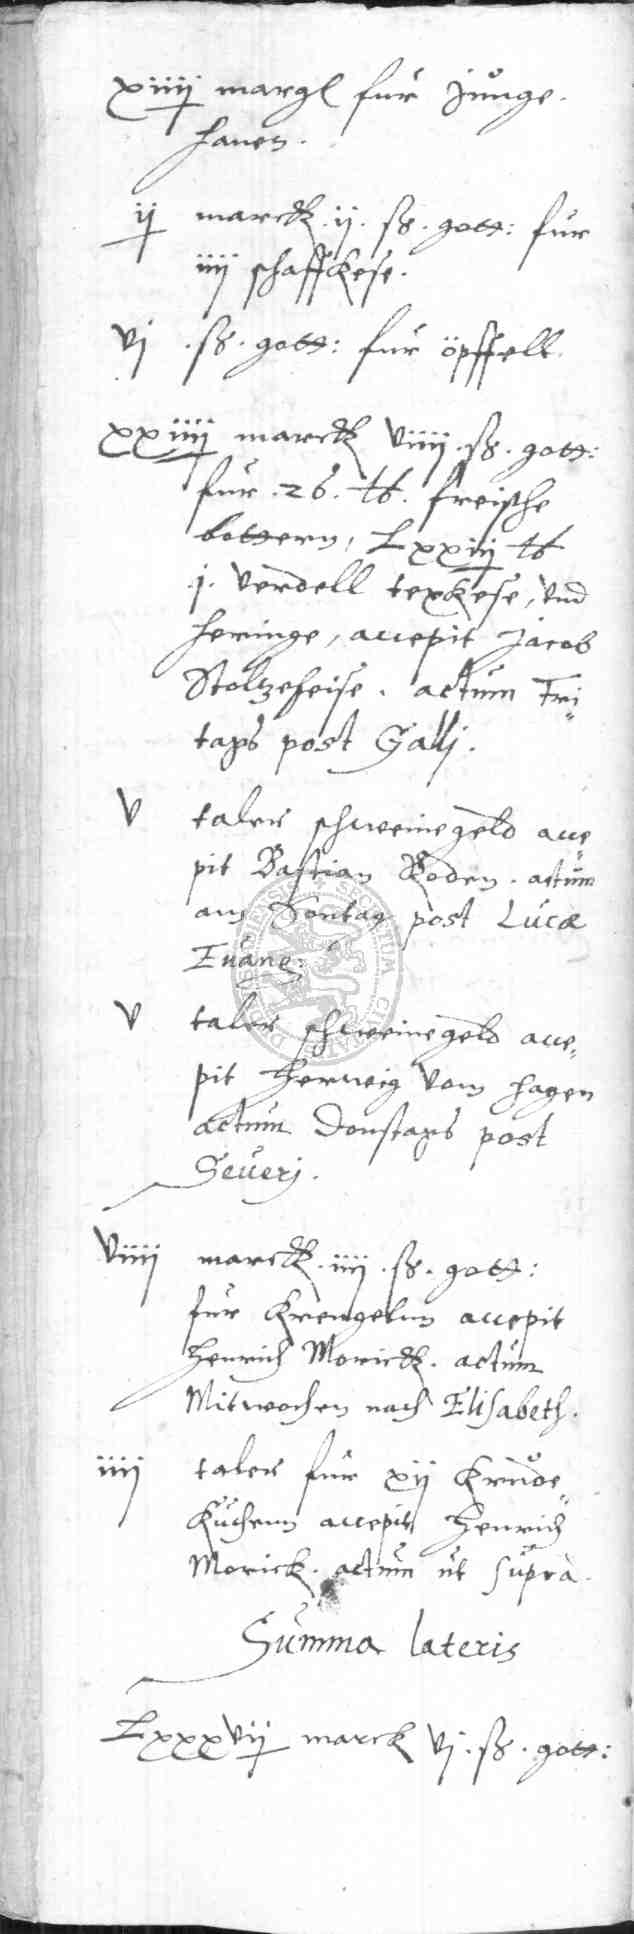 xiiij margk fur Junge
hanen.
ij marck. ij. ß. gott: fur
iiij schaffkese.
vj . ß. gott: fur öpffell.
xxiiij marck viiij. ß. gott:
fur . 26. tb. freische
bottern, Lxxiij tb
j. verdell texkese, vnd
heringe, accepit Jacob
Stoltzeheise. actum Fri=
tags post Galli.
v taler schweinegeld acce=
pit Bastian Roden. actum
am Sontag post Lucæ
Euang:
v taler schweinegeld acce=
pit Herweig vom Hagen
actum Donstags post
Severj.
viiij marck. iiij. ß. gott:
fur Krengelnn accepit
Henrich Morick. actum
Mitwochen nach Elisabeth.
iiij taler fur xij Krude=
Kuchenn accepit Henrich
Morick. actum ut supra.
Summa lateris
Lxxxvij marck vj. ß. gott: